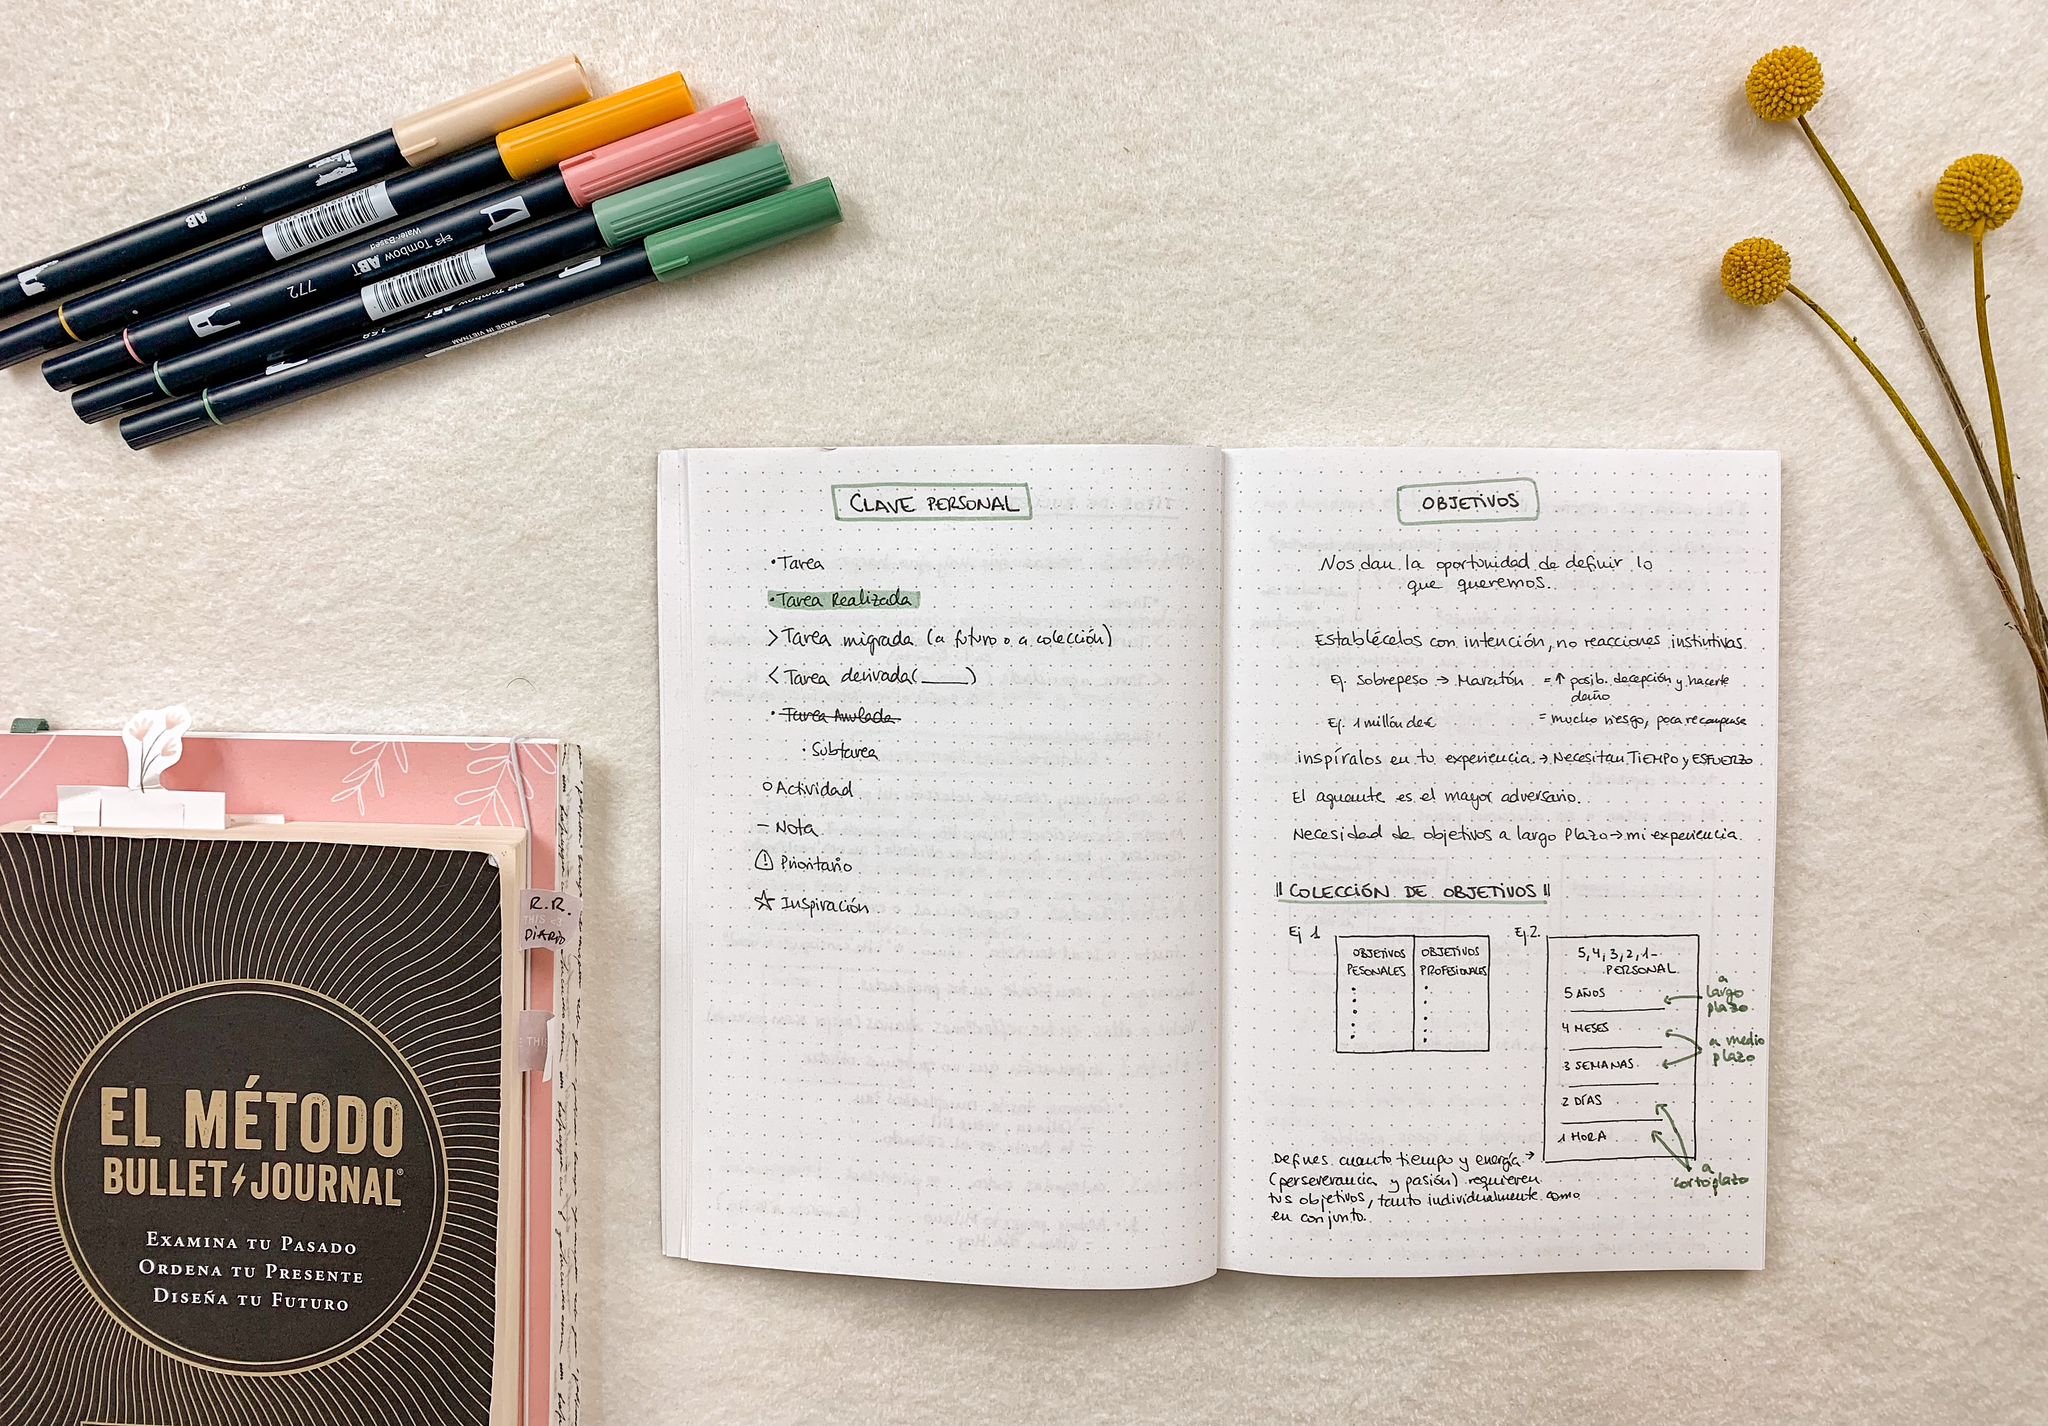 AB
Tombow ABT
Water-Based
772
Tombow ABT
MADE IN VIETNAM
CLAVE PERSONAL
• Tarea
• Tarea Realizada
> Tarea migrada (a futuro o a colección)
< Tarea derivada (____)
• Tarea Anulada
• Subtarea
O Actividad
– Nota
! Prioritario
☆ Inspiración
OBJETIVOS
Nos dan la oportunidad de definir lo
que queremos.
Establécelos con intención, no reacciones instintivas.
Ej. Sobrepeso → Maratón = ↑ posib. decepción y hacerte
daño
Ej. 1 millón de € = mucho riesgo, poca recompensa
inspíralos en tu experiencia → Necesitan TIEMPO y ESFUERZO
El aguante es el mayor adversario.
Necesidad de objetivos a largo plazo → mi experiencia.
|| COLECCIÓN DE OBJETIVOS ||
Ej 1
OBJETIVOS
PESONALES
OBJETIVOS
PROFESIONALES
Ej 2.
5, 4, 3, 2, 1 –
PERSONAL
5 AÑOS
4 MESES
3 SEMANAS
2 DÍAS
1 HORA
a
largo
plazo
a medio
plazo
a
corto plazo
Defines cuanto tiempo y energía →
(perseverancia y pasión) requieren
tus objetivos, tanto individualmente como
en conjunto.
R.R.
THIS
DIARIO
THIS
EL MÉTODO
BULLET JOURNAL®
EXAMINA TU PASADO
ORDENA TU PRESENTE
DISEÑA TU FUTURO